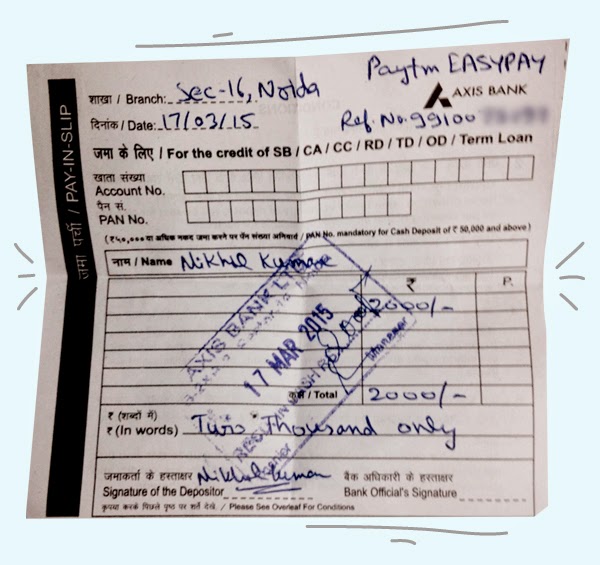 Paytm EASYPAY
शाखा / Branch: Sec-16, Noida
AXIS BANK
दिनांक / Date: 17/03/15
Ref. No. 99100
जमा पर्ची / PAY-IN-SLIP
जमा के लिए / For the credit of SB / CA / CC / RD / TD / OD / Term Loan
खाता संख्या
Account No.
पैन सं.
PAN No.
(₹५०,००० या अधिक नकद जमा करने पर पॅन संख्या अनिवार्य / PAN No. mandatory for Cash Deposit of ₹ 50,000 and above)
नाम / Name Nikhil Kumar
₹ P.
2000/-
AXIS BANK LTD
17 MAR 2015
कुल / Total 2000/-
₹ (शब्दों में)
₹ (In words) Two Thousand only
जमाकर्ता के हस्ताक्षर Nikhil Kumar बैंक अधिकारी के हस्ताक्षर
Signature of the Depositor Bank Official's Signature
कृपया करके पिछले पृष्ठ पर शर्तें देखें. / Please See Overleaf For Conditions